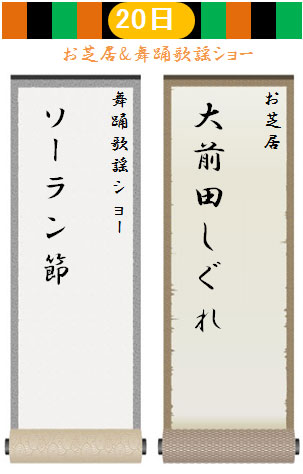 20日
お芝居&舞踊歌謡ショー
お芝居
大前田しぐれ
舞踊歌謡ショー
ソーラン節